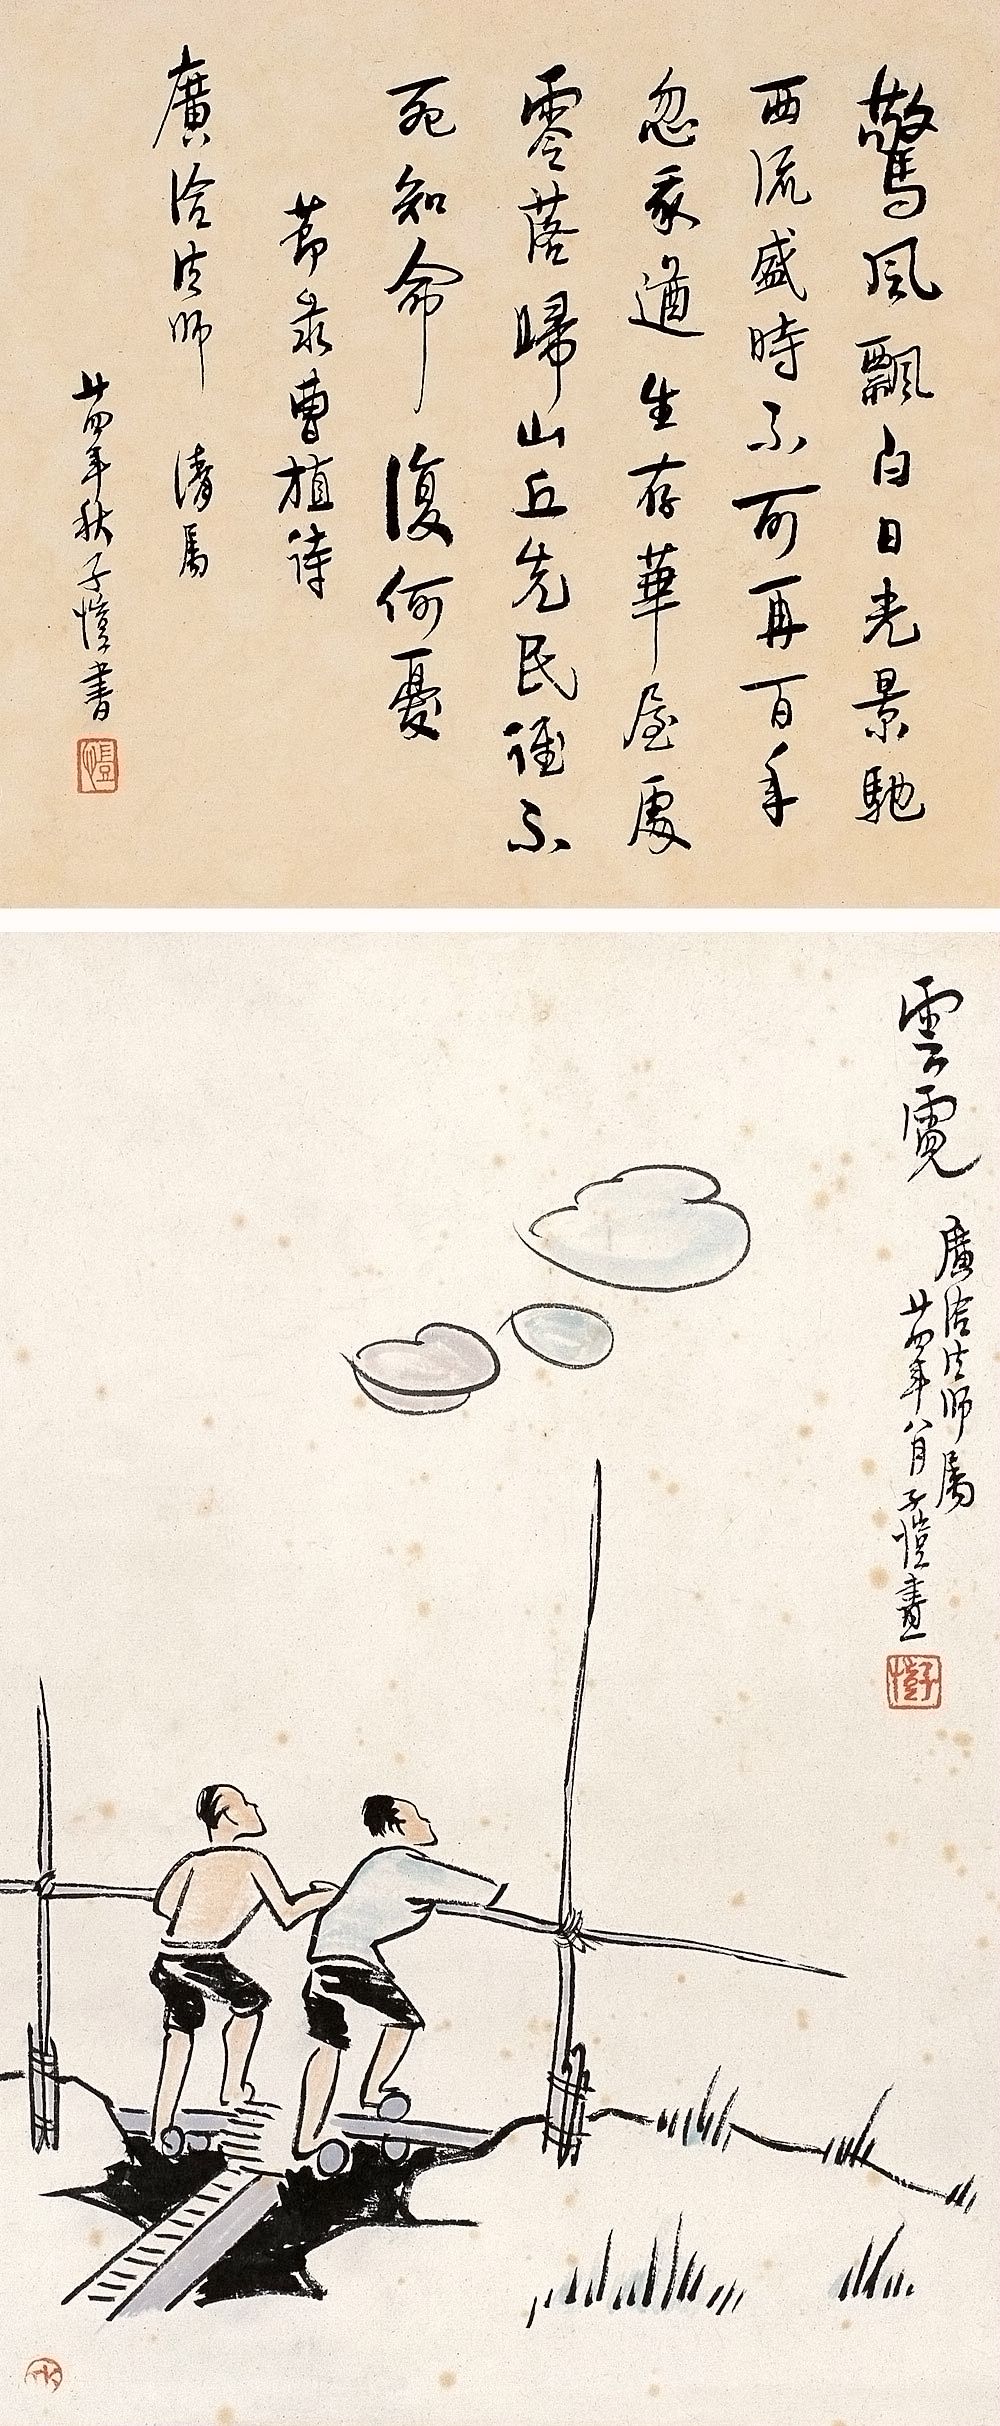 驚風飄白日光景馳
西流盛時不可再百年
忽我遒生存華屋處
零落歸山丘先民誰不
死知命復何憂
節录曹植詩
廣洽法師 清属
廿四年秋子愷書
愷
雲霓
廣洽法師属
廿四年八月子愷畫
子愷